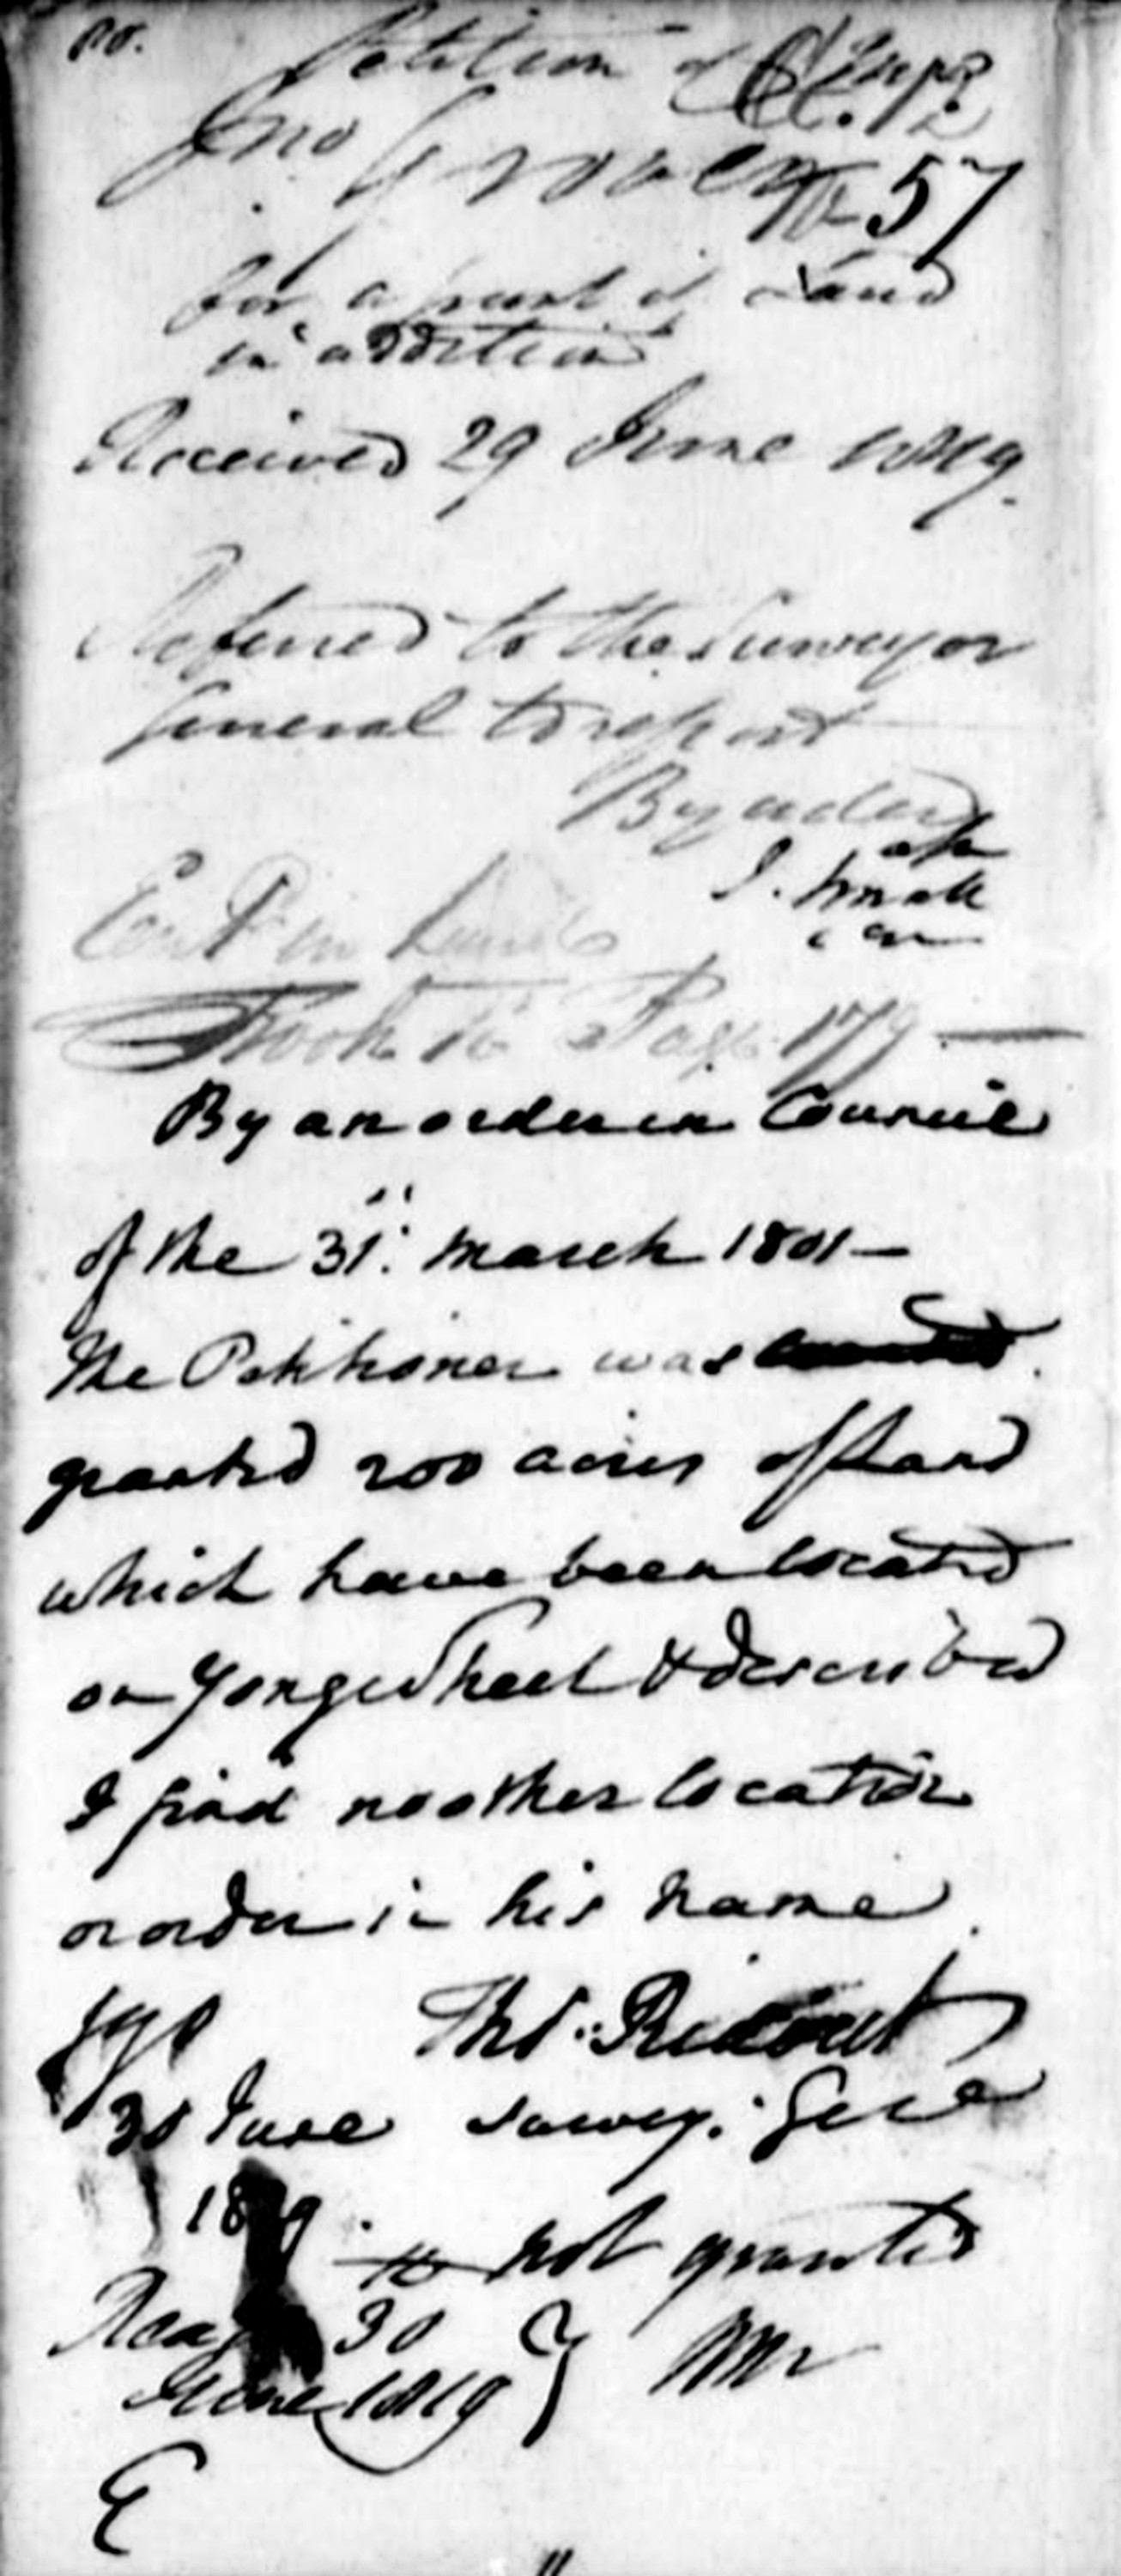 Petition of
Jno
No 57
for a grant of Land
in addition
Received 29 June 1819.
Referred to the Surveyor
General to report
By order
J. Small
Ent'd in Land
Book K Page 179 —
By an order in Council
of the 31st. March 1801 —
The Petitioner was
granted 200 acres of Land
which have been located
on Yonge Street & described
I find no other location
or order in his name.
Thos. Ridout
30 June Survey. Genl
1819.
not granted
Read 30
June 1819